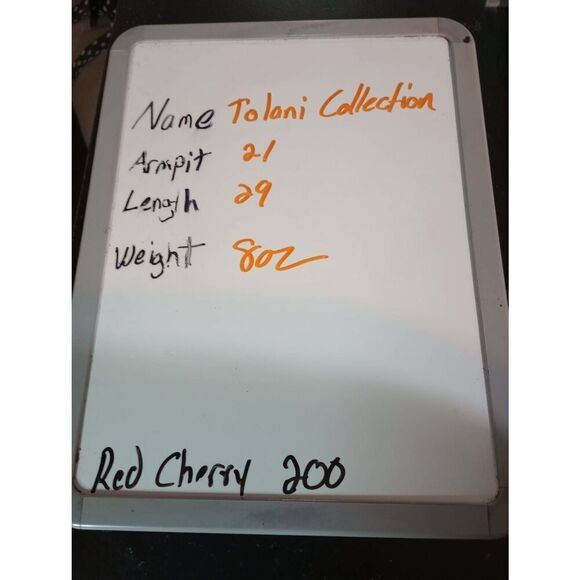 Name Tolani Collection
Armpit 21
Length 29
Weight 8oz
Red Cherry 200